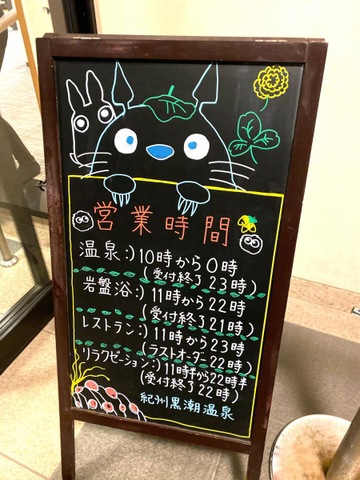 営業時間
温泉:)10時から0時
(受付終了23時)
岩盤浴:)11時から22時
(受付終了21時)
レストラン:)11時から23時
(ラストオーダー22時)
リラクゼーション:)11時半から22時半
(受付終了22時)
紀州黒潮温泉